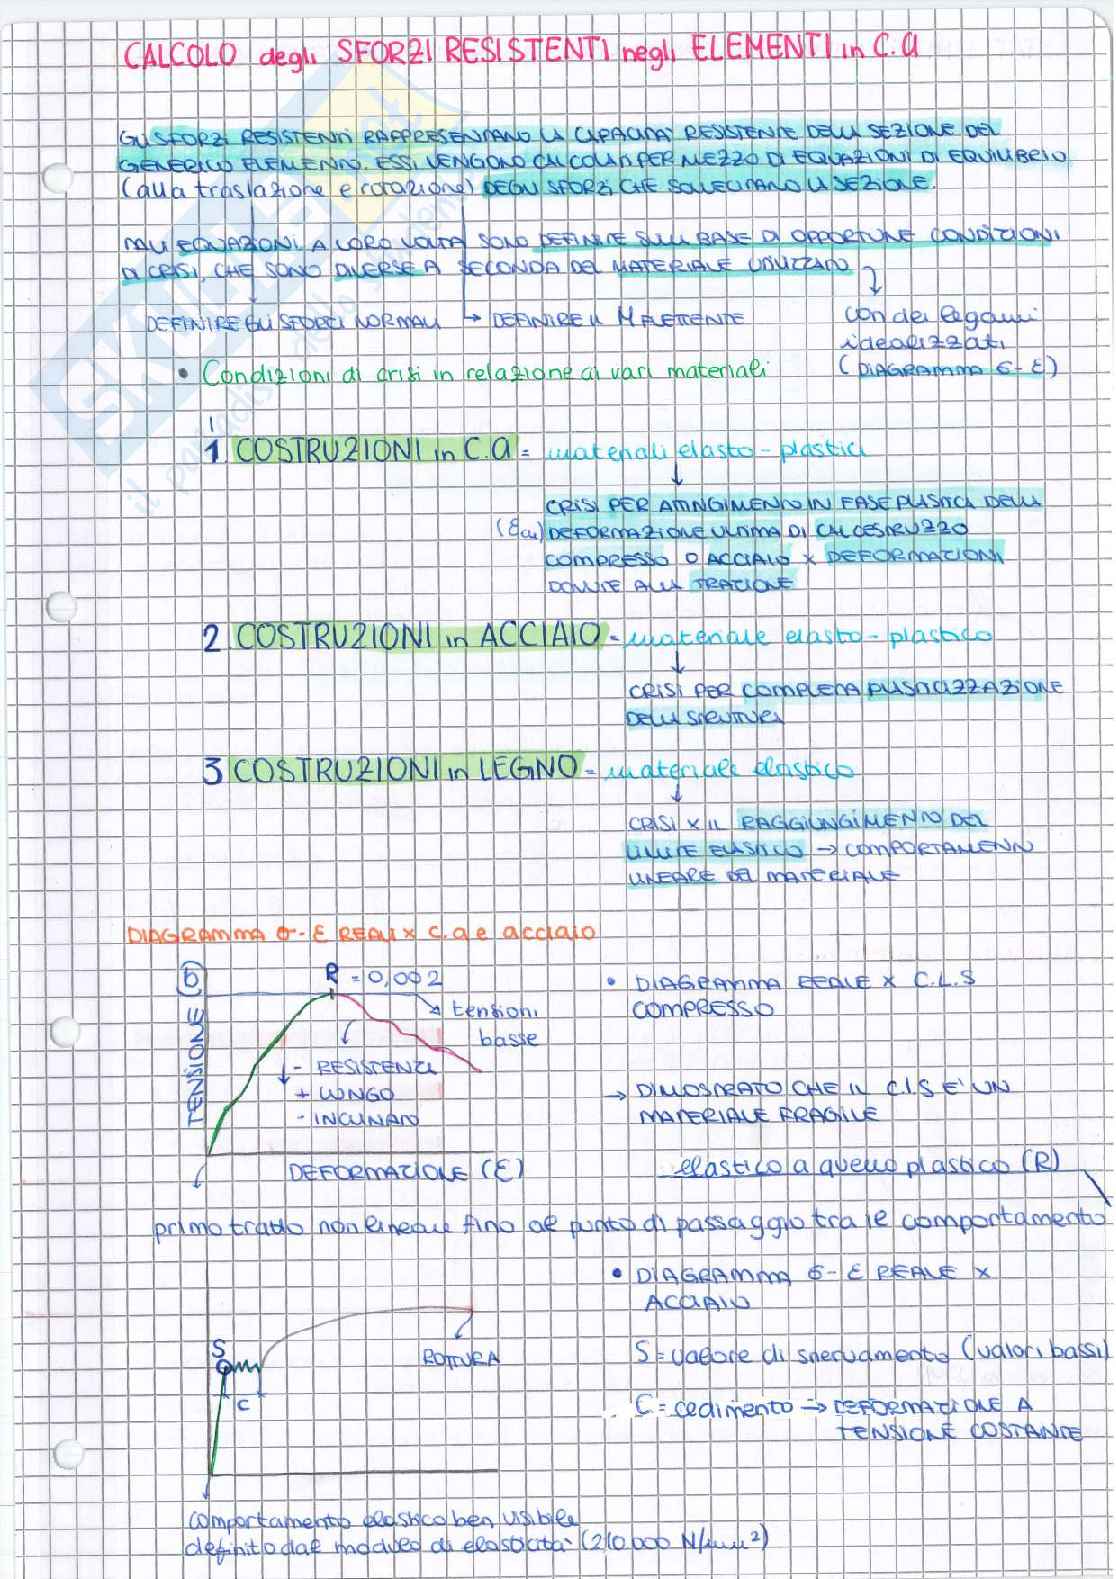 CALCOLO degli SFORZI RESISTENTI negli ELEMENTI in C.A
GLI SFORZI RESISTENTI RAPPRESENTANO LA CAPACITA' RESISTENTE DELLA SEZIONE DEL
GENERICO ELEMENTO. ESSI VENGONO CALCOLATI PER MEZZO DI EQUAZIONI DI EQUILIBRIO
(alla traslazione e rotazione) DEGLI SFORZI, CHE SOLLECITANO LA SEZIONE.
TALI EQUAZIONI, A LORO VOLTA SONO DEFINITE SULLA BASE DI OPPORTUNE CONDIZIONI
DI CRISI, CHE SONO DIVERSE A SECONDA DEL MATERIALE UTILIZZATO
DEFINIRE GLI SFORZI NORMALI → DEFINIRE IL M FLETTENTE
con dei legami
idealizzati
(DIAGRAMMA σ-ε)
• Condizioni di crisi in relazione ai vari materiali
1 COSTRUZIONI in C.A = materiali elasto-plastici
CRISI PER ATTINGIMENTO IN FASE PLASTICA DELLA
(εcu) DEFORMAZIONE ULTIMA DI CALCESTRUZZO
COMPRESSO O ACCIAIO x DEFORMAZIONI
DOVUTE ALLA TRAZIONE
2 COSTRUZIONI in ACCIAIO = materiale elasto-plastico
CRISI PER COMPLETA PLASTICIZZAZIONE
DELLA STRUTTURA
3 COSTRUZIONI in LEGNO = materiale elastico
CRISI x IL RAGGIUNGIMENTO DEL
LIMITE ELASTICO → COMPORTAMENTO
LINEARE DEL MATERIALE
DIAGRAMMA σ-ε REALI x c.a e acciaio
TENSIONE (σ)
R = 0,002
tensioni
basse
- RESISTENZA
+ LUNGO
- INCLINATO
DEFORMAZIONE (ε)
• DIAGRAMMA REALE x C.L.S
COMPRESSO
→ DIMOSTRATO CHE IL C.l.S E' UN
MATERIALE FRAGILE
elastico a quello plastico (R)
primo tratto non lineare fino al punto di passaggio tra le comportamento
• DIAGRAMMA σ-ε REALE x
ACCIAIO
S
C
ROTTURA
S = valore di snervamento (valori bassi)
C = cedimento → DEFORMAZIONE A
TENSIONE COSTANTE
comportamento elastico ben visibile
definito dal modulo di elasticità (210.000 N/mm²)